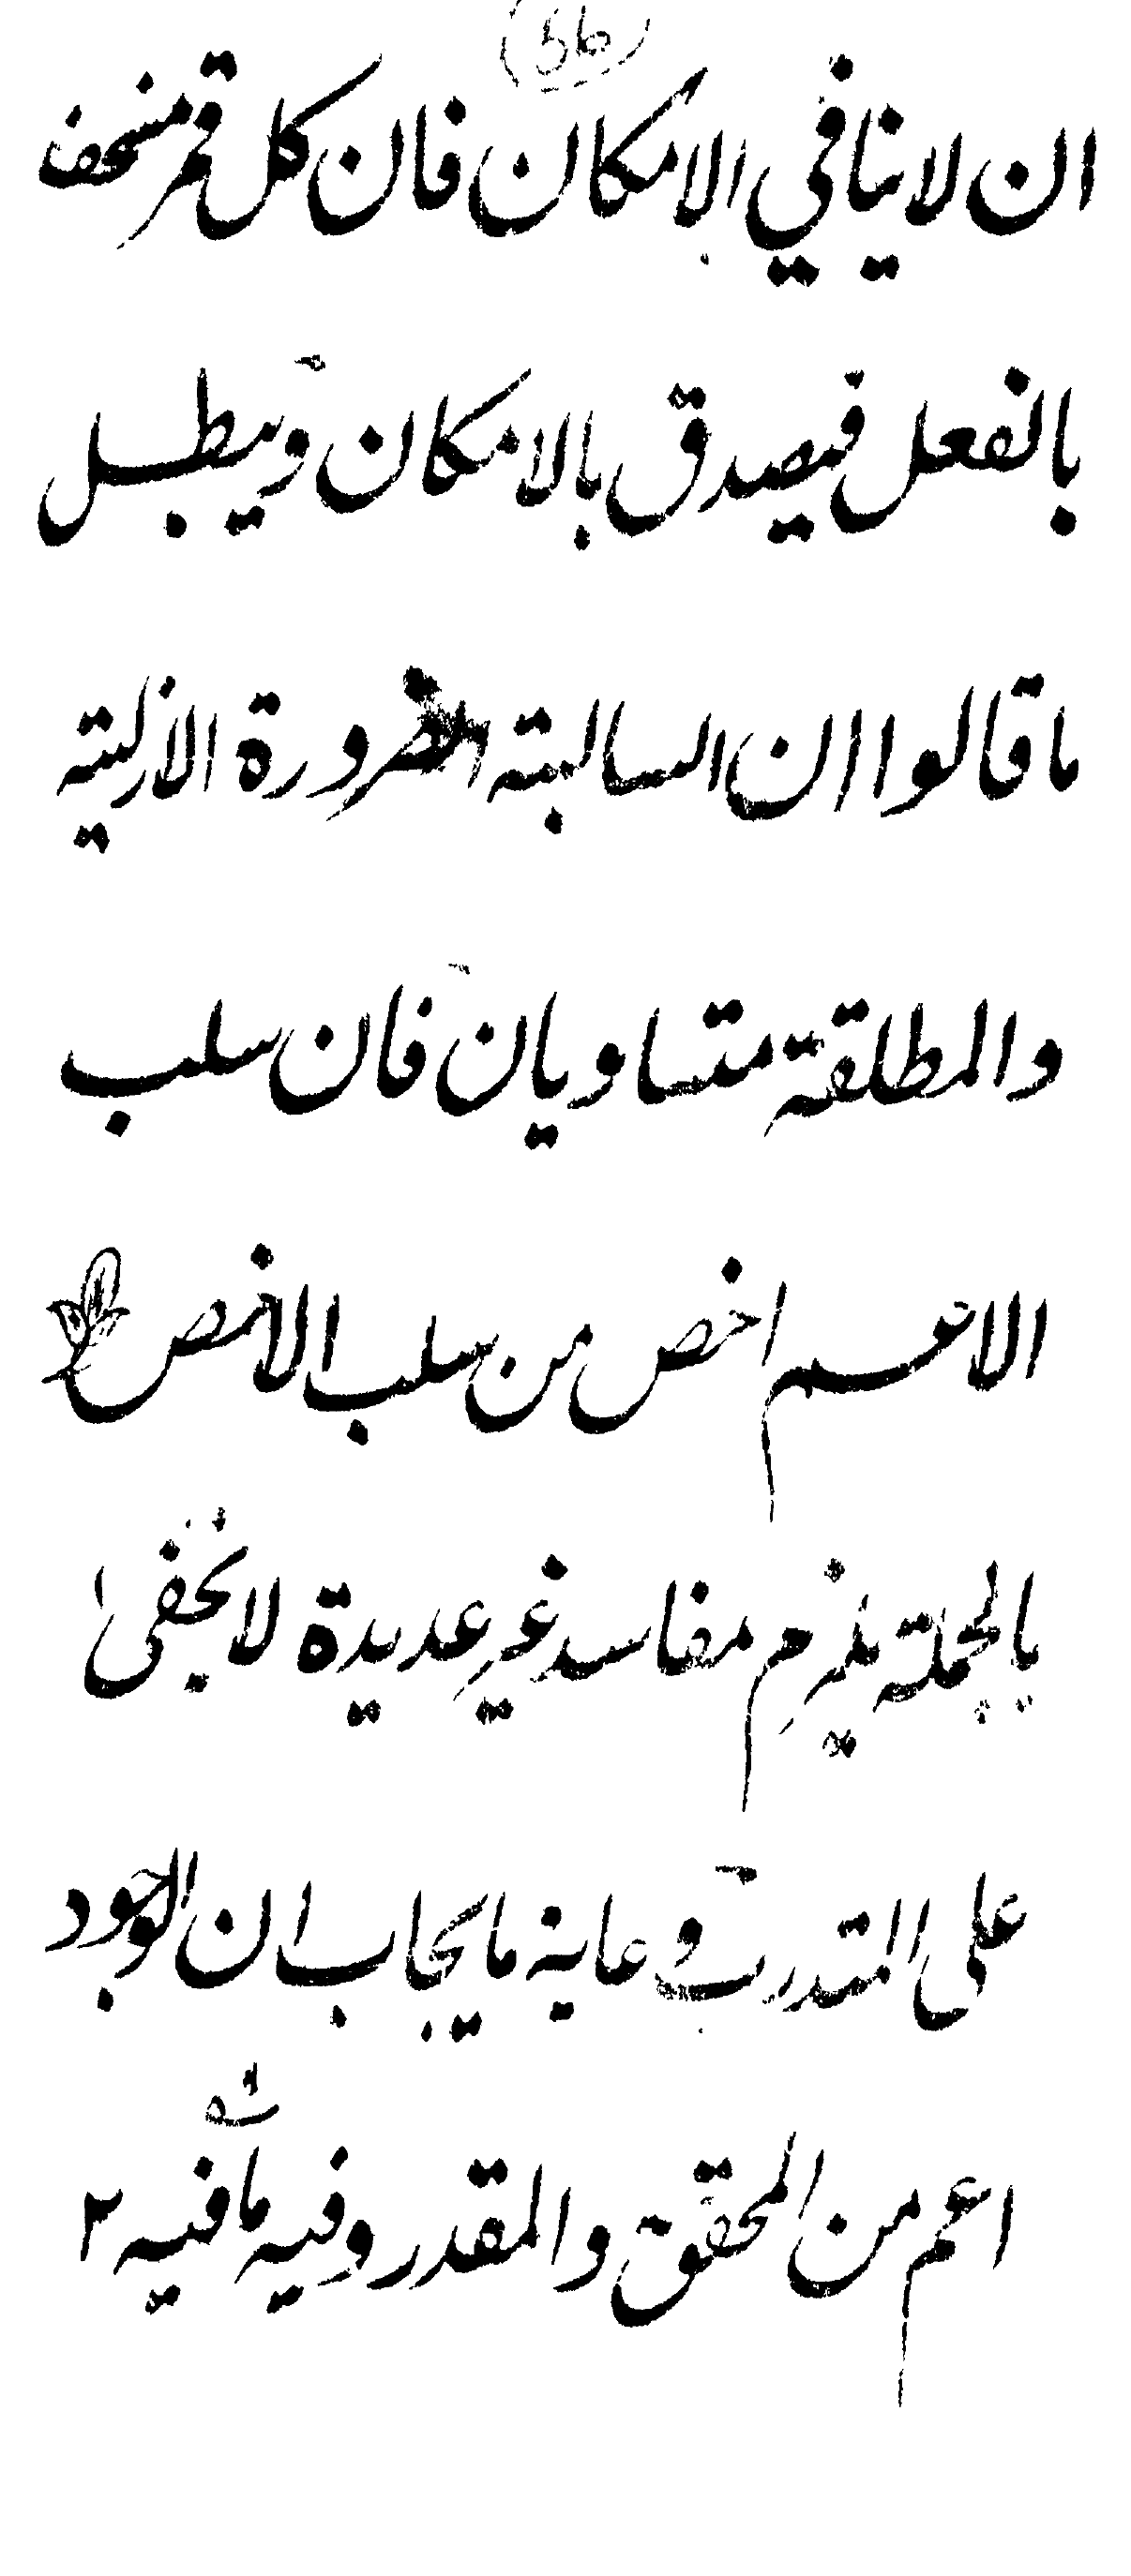 ان لا ينافي الامكان فان كل قمر منخسف
بالفعل فيصدق بالامكان ويبطل
ما قالوا ان السالبة الضرورة الازلية
والمطلقة متساويان فان سلب
الاعم اخص من سلب الاخص
بالجملة يلزم مفاسد غير عديدة لا يخفى
على المتدرب وعاية ما يجاب ان الوجود
اعم من المحقق والمقدر وفيه ما فيه ٢